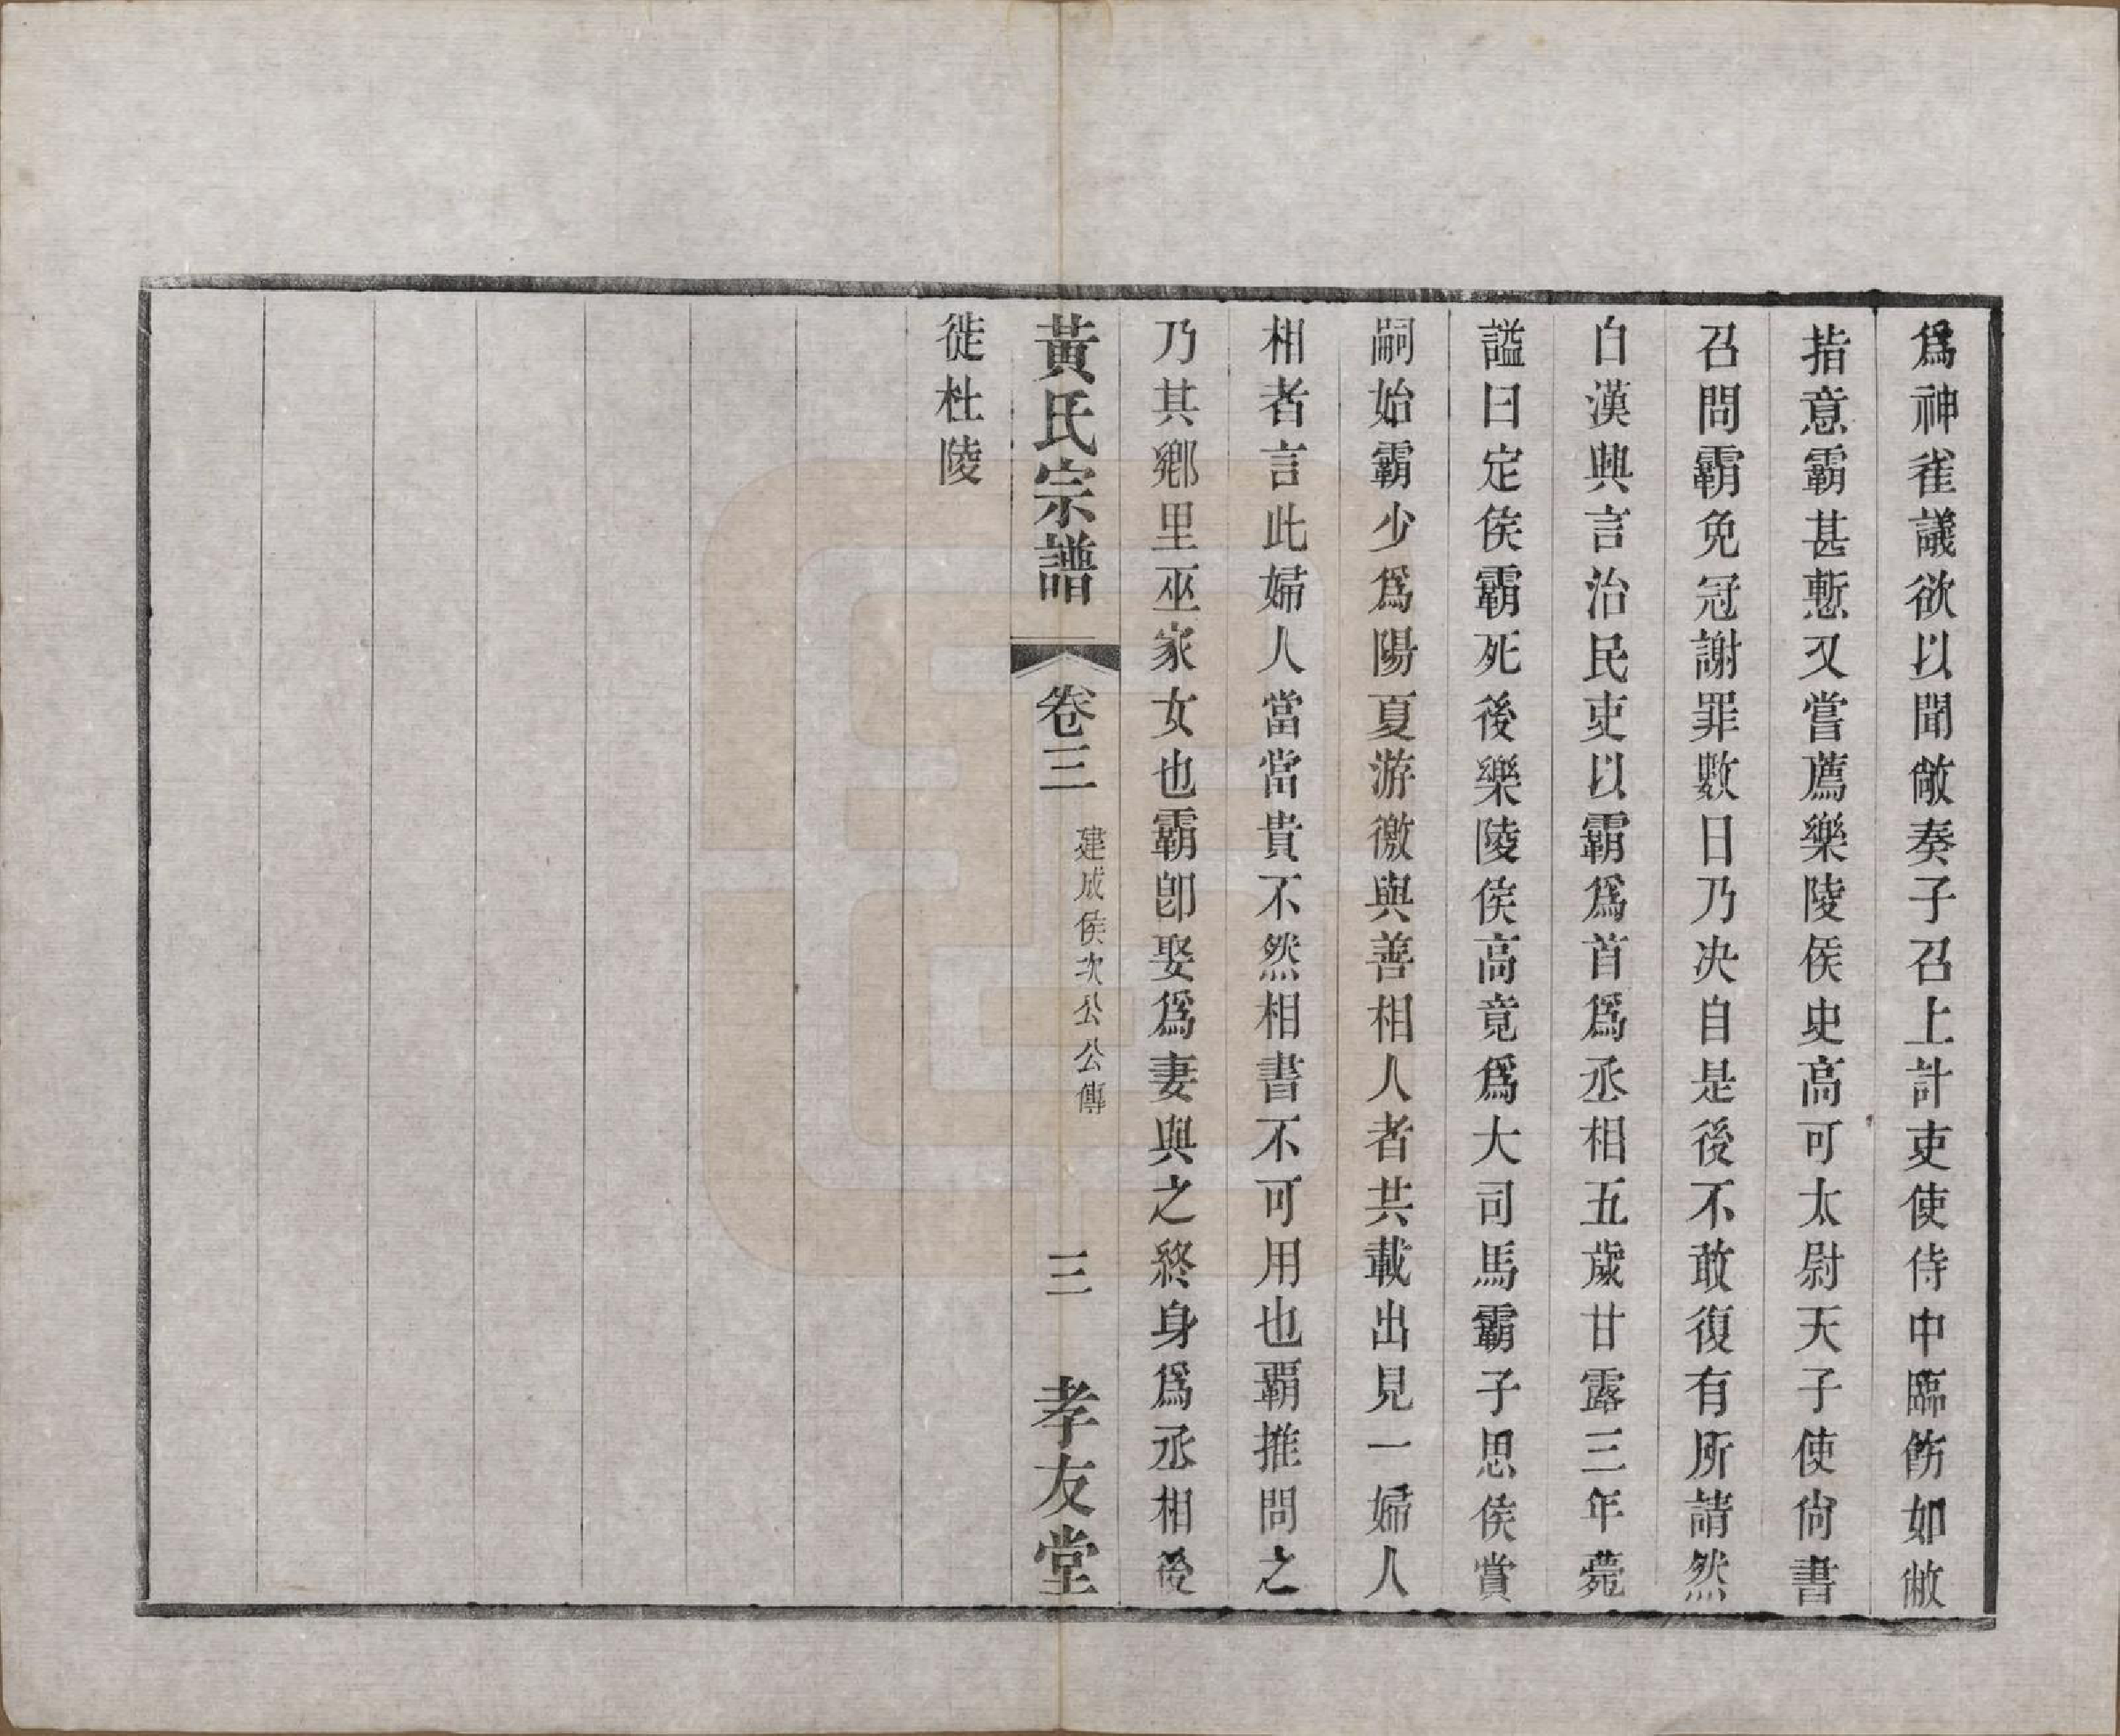 爲神雀議欲以聞敞奏子召上計吏使侍中臨飭如敝
指意霸甚慙又嘗薦樂陵侯史高可太尉天子使尙書
召問霸免冠謝罪數日乃決自是後不敢復有所請然
自漢興言治民吏以霸爲首爲丞相五歲甘露三年薨
諡曰定侯霸死後樂陵侯高竟爲大司馬霸子思侯賞
嗣始霸少爲陽夏游徼與善相人者共載出見一婦人
相者言此婦人當富貴不然相書不可用也霸推問之
乃其鄕里巫家女也霸卽娶爲妻與之終身爲丞相後
黃氏宗譜 卷三 建成侯次公公傳 三 孝友堂
徙杜陵